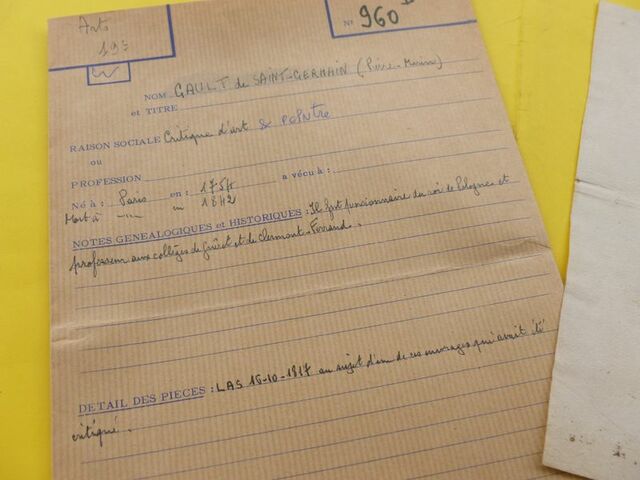 Arts
19e
No 960 D
NOM GAULT de SAINT-GERMAIN (Pierre-Marie)
et TITRE
RAISON SOCIALE Critique d'art & PEINtre
ou
PROFESSION
Né à : Paris en : 1754 a vécu à :
Mort à en 1842
NOTES GENEALOGIQUES et HISTORIQUES : Il fut pensionnaire du roi de Pologne et
professeur aux collèges de Guéret et de Clermont-Ferrand.
DETAIL DES PIECES : LAS 16-10-1817 au sujet d'un de ces ouvrages qui avait été
critiqué.